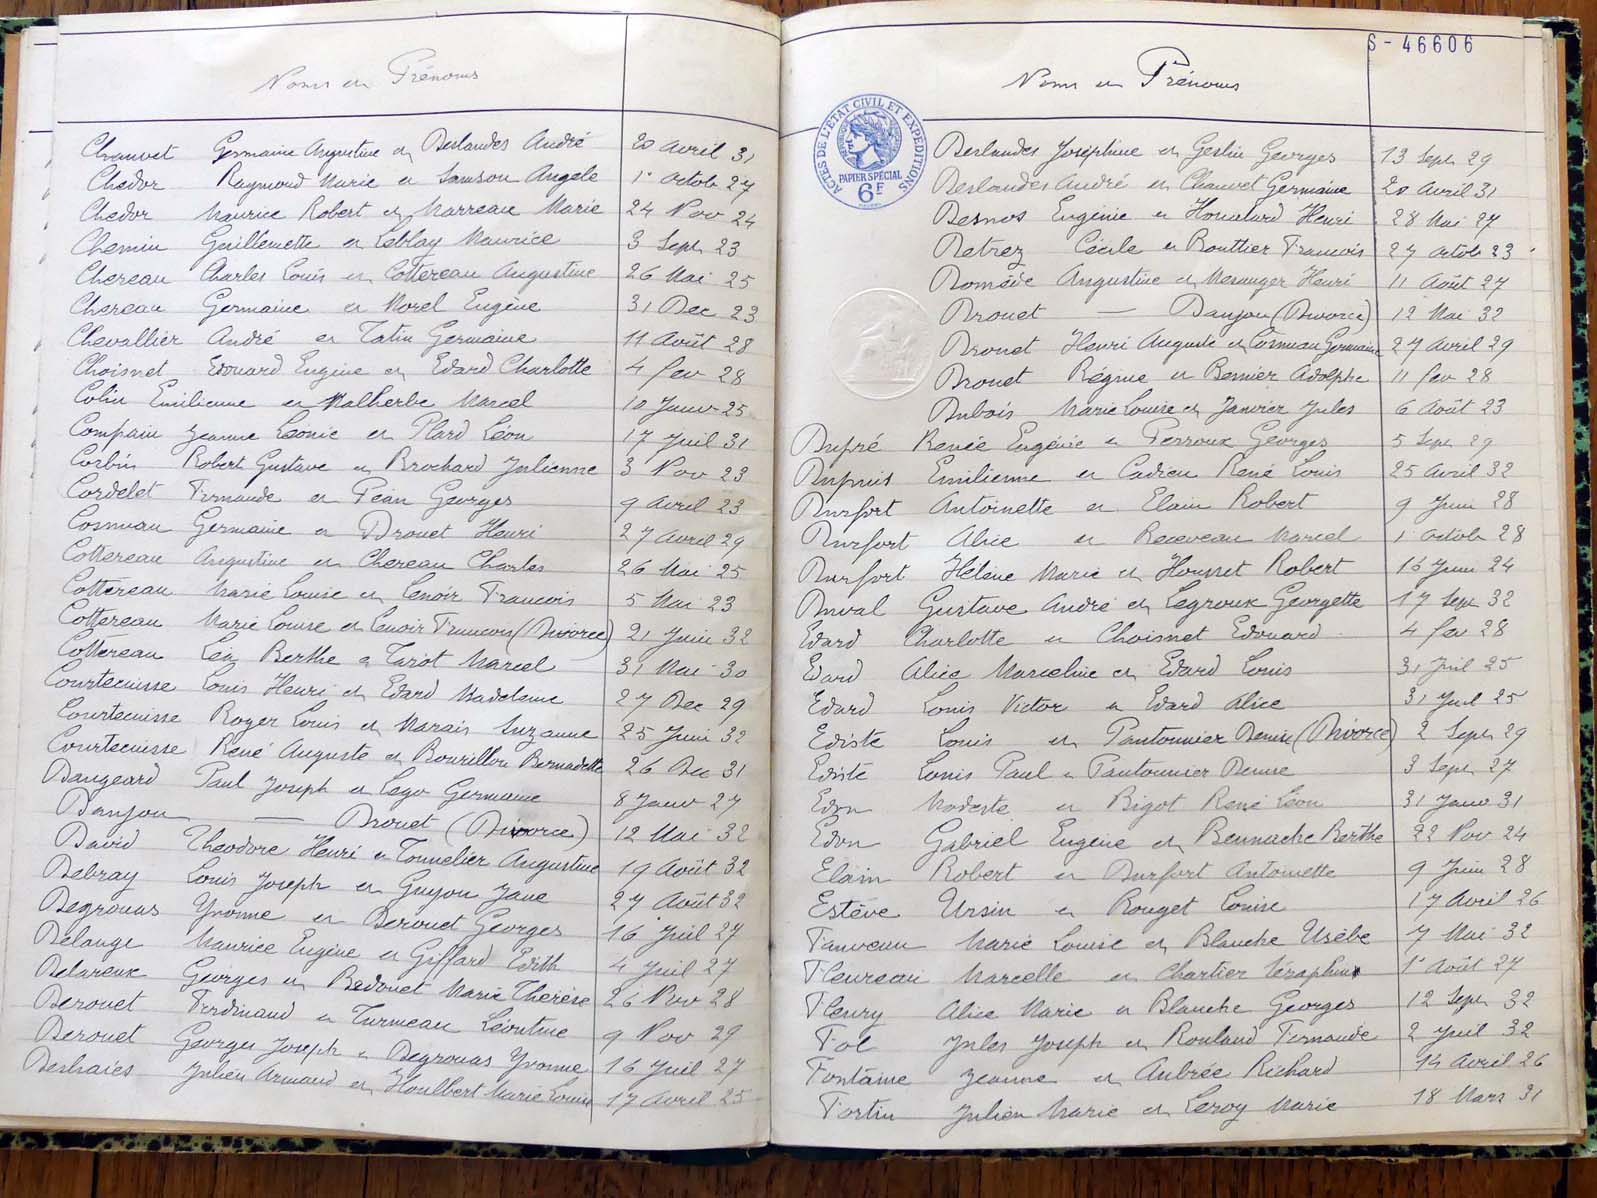 Noms et Prénoms
Chauvet Germaine Augustine et Deslandes André 20 Avril 31
Chedor Raymond Marie et Samson Angèle 1er Octob 27
Chedor Maurice Robert et Marreau Marie 24 Nov 24
Chemin Guillemette et Leblay Maurice 3 Sept 23
Chereau Charles Louis et Cottereau Augustine 26 Mai 25
Chereau Germaine et Morel Eugène 31 Dec 23
Chevallier André et Tatin Germaine 11 Août 28
Choisnet Edouard Eugène et Edard Charlotte 4 fev 28
Colin Emilienne et Malherbe Marcel 10 Janv 25
Compain Jeanne Léonie et Plard Léon 17 Juil 31
Corbin Robert Gustave et Brochard Julienne 3 Nov 23
Cordelet Fernande et Péan Georges 9 Avril 23
Cosnuau Germaine et Drouet Henri 27 Avril 29
Cottereau Augustine et Chereau Charles 26 Mai 25
Cottereau Marie Louise et Lenoir Francois 5 Mai 23
Cottereau Marie Louise et Lenoir Francois (Divorce) 21 Juin 32
Cottereau Léa Berthe et Tarot Marcel 31 Mai 30
Courtecuisse Louis Henri et Edard Madeleine 27 Dec 29
Courtecuisse Roger Louis et Marais Suzanne 25 Juin 32
Courtecuisse René Auguste et Bourillon Bernadette 26 Dec 31
Dangeard Paul Joseph et Lego Germaine 8 Janv 27
Danjou — Drouet (Divorce) 12 Mai 32
David Théodore Henri et Tonnelier Augustine 19 Août 32
Debray Louis Joseph et Guyon Jane 27 Août 32
Degrouas Yvonne et Derouet Georges 16 Juil 27
Delange Maurice Eugène et Giffard Edith 4 Juil 27
Delareux Georges et Bedouet Marie Thérèse 26 Nov 28
Derouet Ferdinand et Turmeau Léontine 9 Nov 29
Derouet Georges Joseph et Degrouas Yvonne 16 Juil 27
Deshaies Julien Armand et Houlbert Marie Louise 17 Avril 25
S-46606
Noms et Prénoms
ACTES DE L'ÉTAT CIVIL ET EXPÉDITIONS
PAPIER SPÉCIAL
6F
Deslandes Joséphine et Geslin Georges 13 Sept 29
Deslandes André et Chauvet Germaine 20 Avril 31
Desnos Eugénie et Houalard Henri 28 Mai 27
Detrez Cécile et Bouttier Francois 27 Octob 23
Domède Augustine et Mesanger Henri 11 Août 27
Drouet — Danjou (Divorce) 12 Mai 32
Drouet Henri Auguste et Cosnuau Germaine 27 Avril 29
Drouet Régine et Bernier Adolphe 11 fev 28
Dubois Marie Louise et Janvier Jules 6 Août 23
Dupré Renée Eugénie et Perroux Georges 5 Sept 29
Dupuis Emilienne et Cadieu René Louis 25 Avril 32
Durfort Antoinette et Elain Robert 9 Juin 28
Durfort Alice et Receveau Marcel 1er Octob 28
Durfort Hélène Marie et Housset Robert 16 Juin 24
Duval Gustave André et Legroux Georgette 17 Sept 32
Edard Charlotte et Choisnet Edouard 4 fev 28
Edard Alice Marceline et Edard Louis 31 Juil 25
Edard Louis Victor et Edard Alice 31 Juil 25
Ediste Louis et Pantonnier Denise (Divorce) 2 Sept 29
Ediste Louis Paul et Pantonnier Denise 3 Sept 27
Edon Modeste et Bigot René Léon 31 Janv 31
Edon Gabriel Eugène et Bennache Berthe 22 Nov 24
Elain Robert et Durfort Antoinette 9 Juin 28
Estève Ursin et Rouget Louise 17 Avril 26
Fauveau Marie Louise et Blanche Usèbe 7 Mai 32
Fleureau Marcelle et Chartier Séraphin 1er Août 27
Fleury Alice Marie et Blanche Georges 12 Sept 32
Fol Jules Joseph et Rouland Fernande 2 Juil 32
Fontaine Jeanne et Aubrée Richard 14 Avril 26
Fortin Julien Marie et Leroy Marie 18 Mars 31